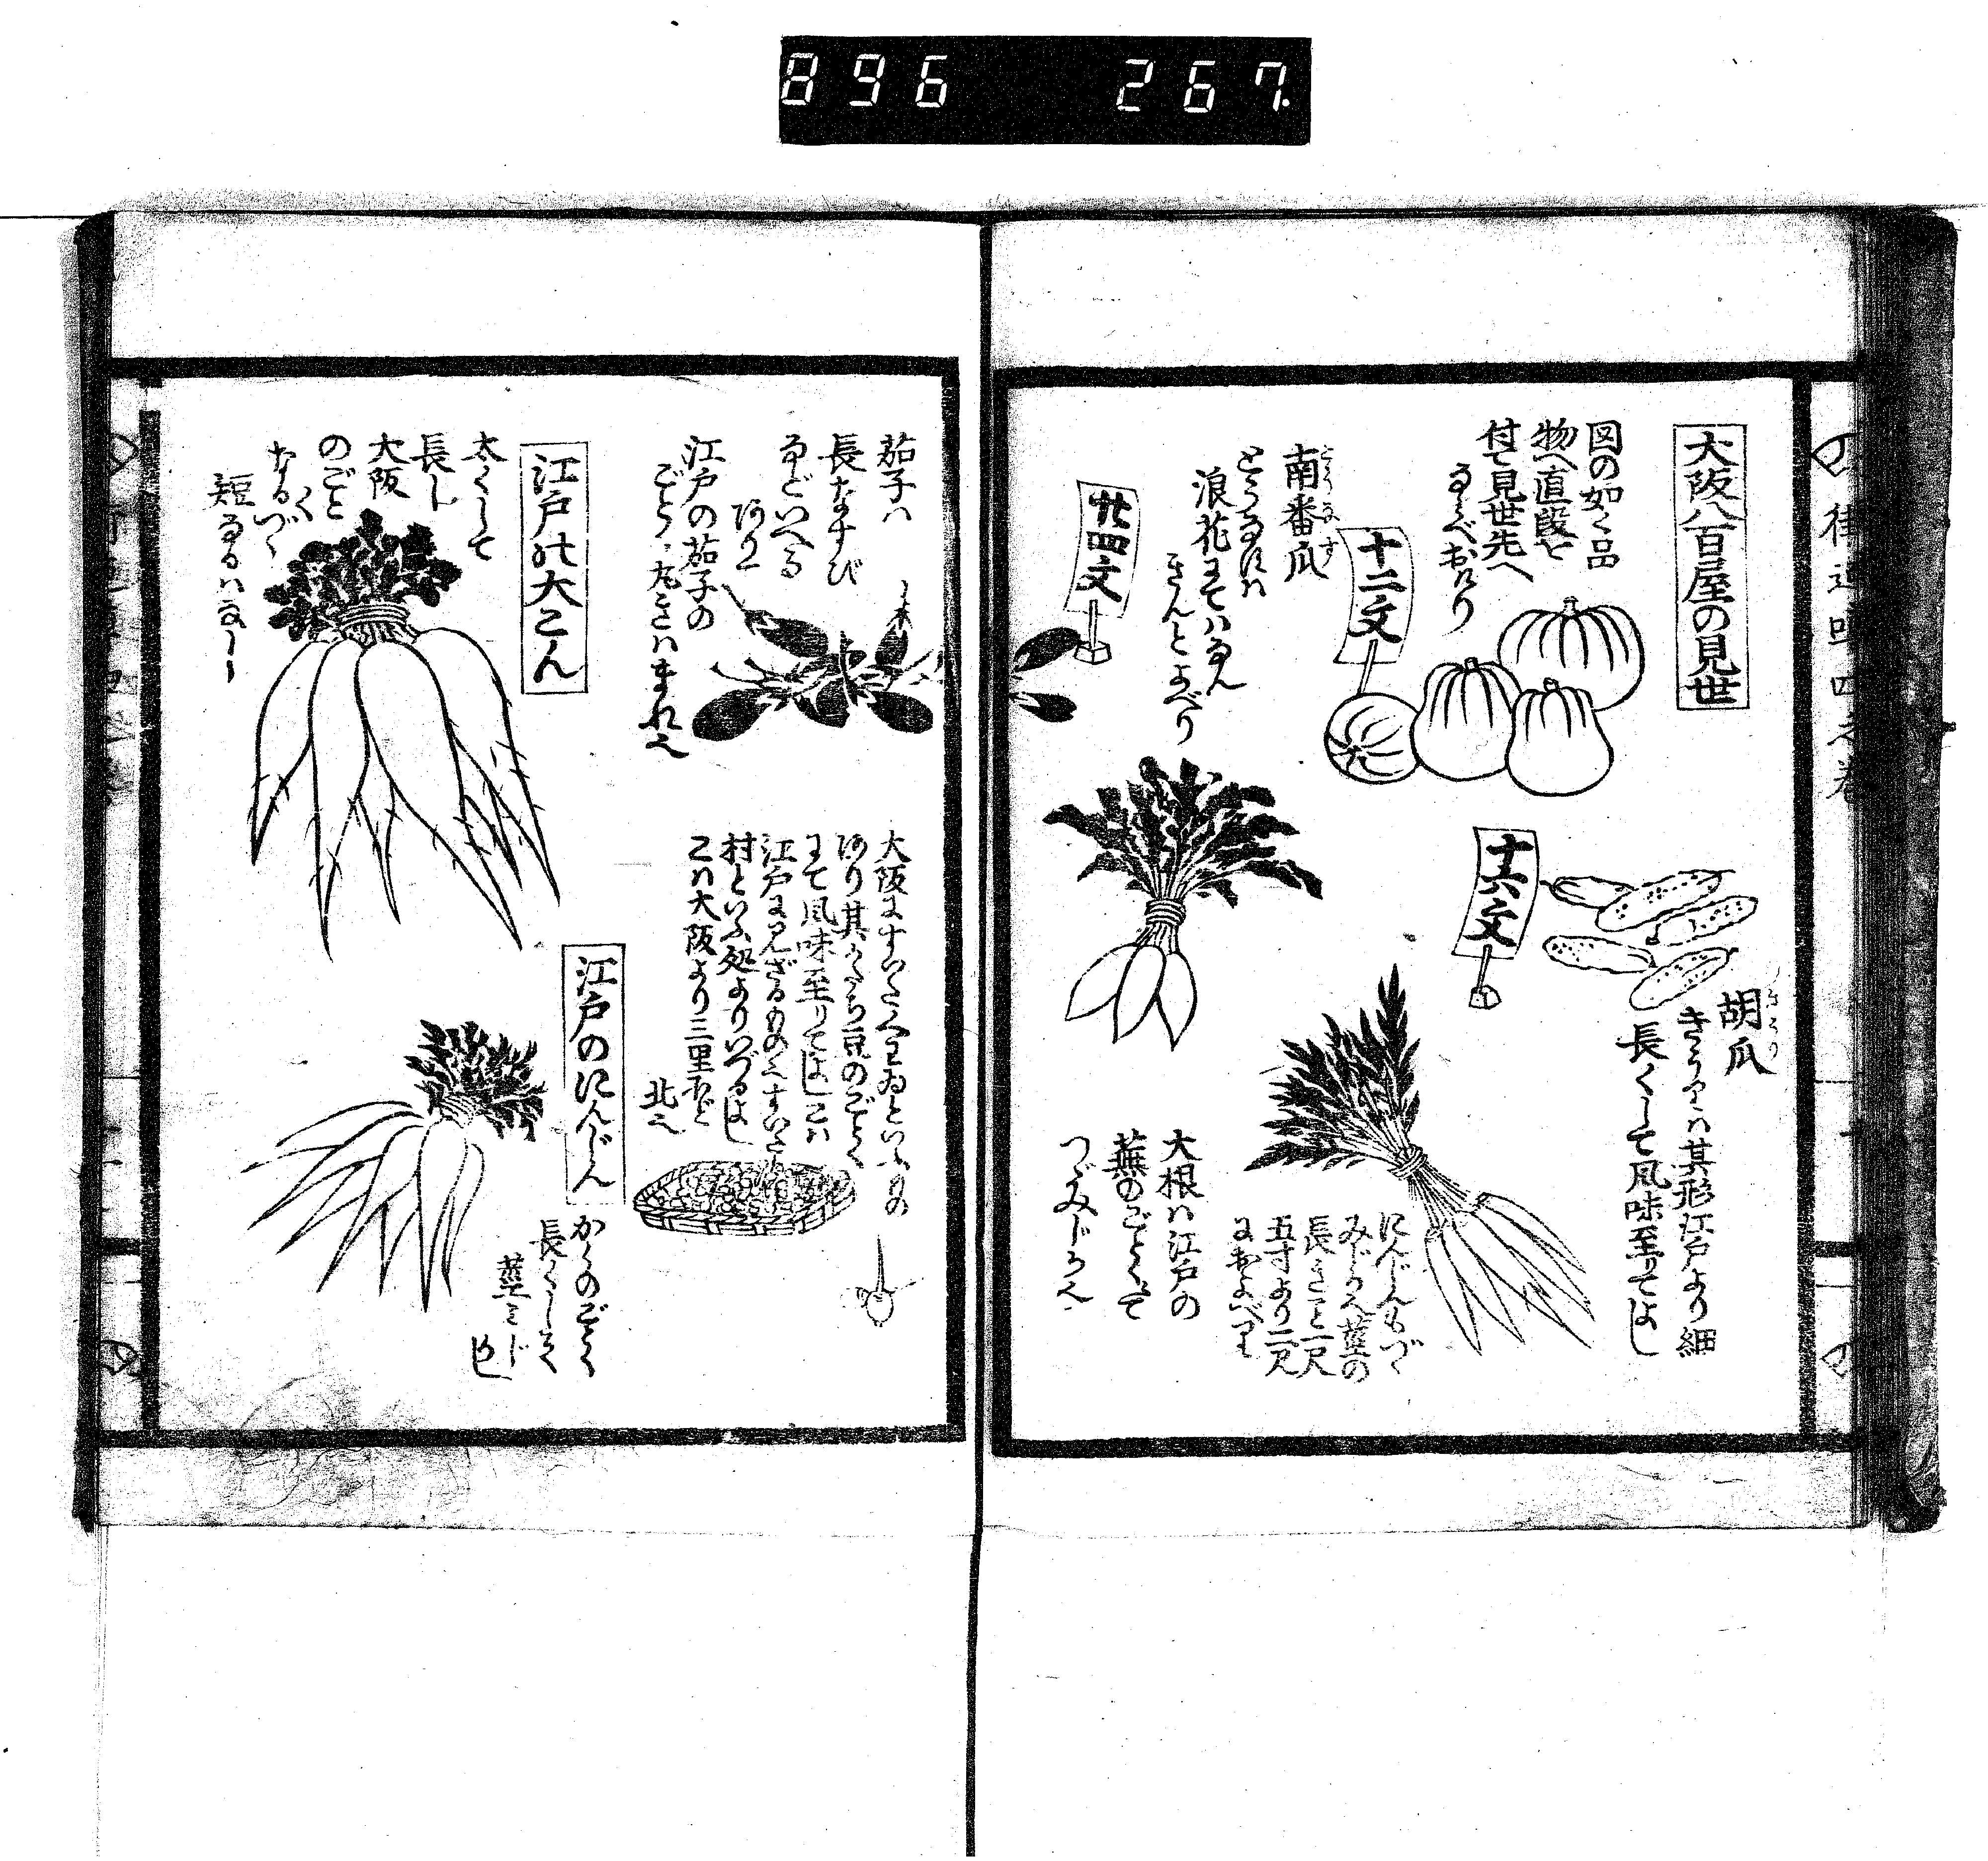 896 267.
大阪八百屋の見世
図の如く品
物へ直段を
付て見世先へ
ならべおけり
十二文
南番瓜
とうなす
とうなすハ
浪花にてハなん
きんとよべり
廿四文
十六文
胡瓜
きうりハ其形江戸より細
長くして風味至りてよし
にんじんもづ
みじかく茎の
長きこと一尺
五寸より二尺
におよべり
大根ハ江戸の
蕪のごとくにて
つゞみじかく
茄子ハ
長なすび
などいへる
あり
江戸の茄子の
ごとく丸きハまれ也
大阪にすいたくわゐといふもの
あり其かたち豆のごとく
にて風味至りてよしこハ
江戸に見ざるもの也すいた
村といふ処よりいづるよし
こハ大阪より三里ほど
北也
江戸の大こん
太くして
長し
大阪
のごと
く
なるづ
短なるハなし
江戸のにんじん
かくのごとく
長くして
茎みじ
かし